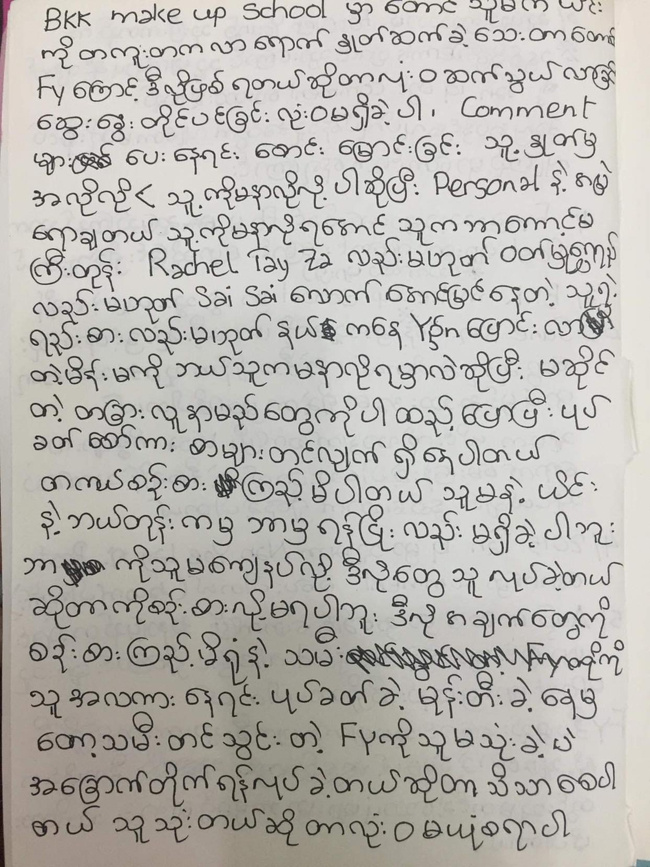 BKK make up school မှာ တောင် သူမက ယင်း
ကို တကူးတက လာ ရောက် နှုတ်ဆက်ခဲ့ သေး တာ တောင်
Fy ကြောင့် ဒီလိုဖြစ် ရတယ် ဆိုတာလုံး ဝ ဆက်သွယ် လာခြင်း
ဆွေး နွေး တိုင်ပင်ခြင်း လုံးဝမရှိခဲ့ ပါ ၊ Comment
များ ပေး နေရင်း စောင်း မြောင်းခြင်း သူ့ နှုတ်မှ
အလိုလို < သူ့ ကိုမနာလိုလို့ ပါဆိုပြီး Personal နဲ့ အမြဲ
ရောချတယ် သူ့ကိုမနာလိုရအောင် သူက ဘာကောင်မ
ကြီးတုန်း Rachel Tay Za လည်း မဟုတ် ဝတ်မှုံရွှေရည်
လည်း မဟုတ် Sai Sai လောက် အောင်မြင် နေတဲ့ သူ့ရဲ့
ရည်းစား လည်း မဟုတ် နယ် ကနေ Ygn ပြောင်း လာ
တဲ့မိန်းမကို ဘယ်သူက မနာလိုရမှာလဲဆိုပြီး မဆိုင်
တဲ့ တခြား လူ နာမည်တွေကိုပါ ထည့် ပြောပြီး ပုပ်
ခတ် စော်ကား စာများ တင်လျက် ရှိ နေပါတယ်
တကယ်စဉ်းစား ကြည့် မိပါတယ် သူမနဲ့ ယင်း
နဲ့ ဘယ်တုန်း ကမှ ဘာမှ ရန်ငြိုး လည်း မရှိခဲ့ ပါဘူး
ဘာ ကိုသူမကျေနပ်လို့ ဒီလိုတွေ သူ လုပ်ခဲ့တယ်
ဆိုတာကိုစဉ်းစားလို့မရပါဘူး ဒီလို အချက်တွေကို
စဉ်းစား ကြည့် မိရုံနဲ့ သမီး ကို
သူ အလကား နေရင်း ပုပ်ခတ် ခဲ့ မုန်းတီး ခဲ့ နေမှ
တော့သမီး တင်သွင်း တဲ့ Fyကိုသူမသုံး ခဲ့ ပဲ
အခြောက်တိုက်ရန်လုပ် ခဲ့တယ်ဆိုတာ သိသာစေပါ
တယ် သူသုံးတယ်ဆို တာလုံး ဝ မယုံစရာပါ